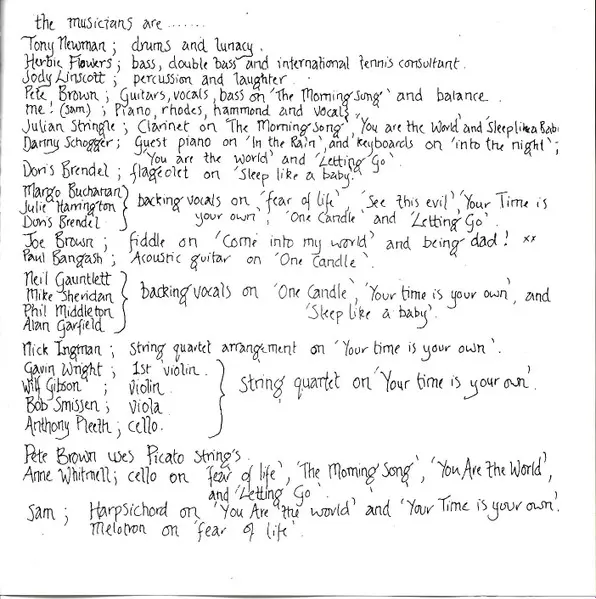 the musicians are .......
Tony Newman ; drums and lunacy.
Herbie Flowers ; bass, double bass and international tennis consultant.
Jody Linscott ; percussion and laughter.
Pete Brown ; Guitars, vocals, bass on 'The Morning Song' and balance.
me! (Sam) ; Piano, rhodes, hammond and vocals
Julian Stringle ; Clarinet on 'The Morning Song', 'You are the World' and 'Sleep like a Babi
Danny Schogger ; Guest piano on 'In the Rain', and keyboards on 'into the night' ;
'You are the world' and 'Letting Go'.
Doris Brendel ; flageolet on 'Sleep like a baby'.
Margo Buchanan
Julie Harrington } backing vocals on 'fear of life', 'See this evil', 'Your Time is
Doris Brendel your own', 'One Candle' and 'Letting Go'
Joe Brown ; fiddle on 'Come into my world' and being dad! xx
Paul Bangash ; Acoustic guitar on 'One Candle'.
Neil Gauntlett
Mike Sheridan } backing vocals on 'One Candle', 'Your time is your own', and
Phil Middleton 'Sleep like a baby'.
Alan Garfield
Nick Ingman ; String quartet arrangement on 'Your time is your own'.
Gavin Wright ; 1st violin.
Wilf Gibson ; violin. } String quartet on 'Your time is your own'.
Bob Smissen ; viola.
Anthony Pleeth ; cello.
Pete Brown uses Picato Strings.
Anne Whitnell ; cello on 'fear of life', 'The Morning Song', 'You Are the World',
and 'Letting Go'.
Sam ; Harpsichord on 'You Are the World' and 'Your Time is your own'.
Melotron on 'fear of life'.